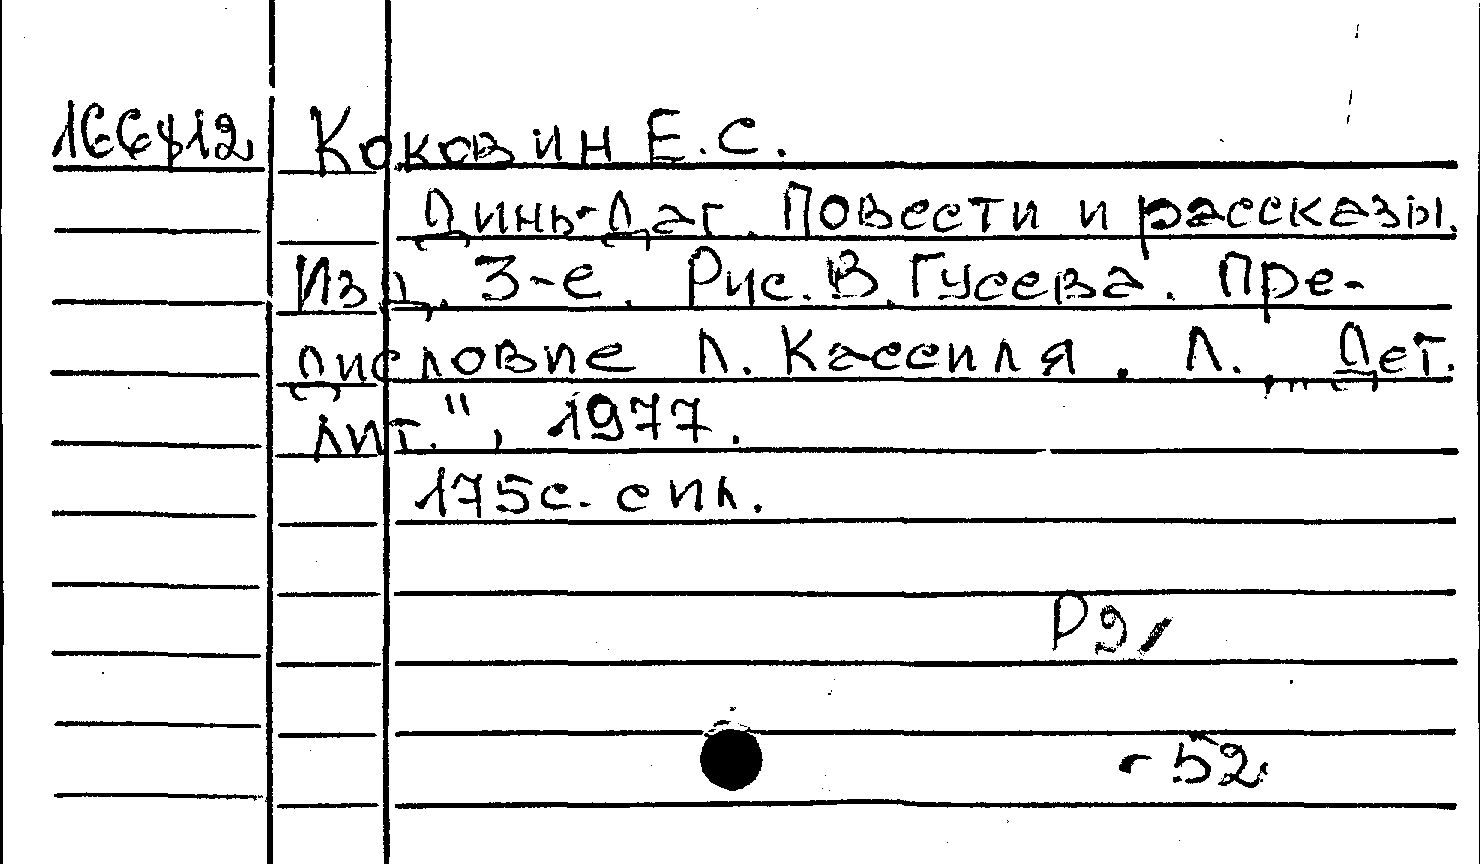 Коковин Е.С.
Динь-Даг. Повести и рассказы.
Изд. 3-е. Рис. В. Гусева. Пре-
дисловие Л. Кассиля. Л., „Дет.
лит.", 1977.
175с. с ил.
Р2
-52